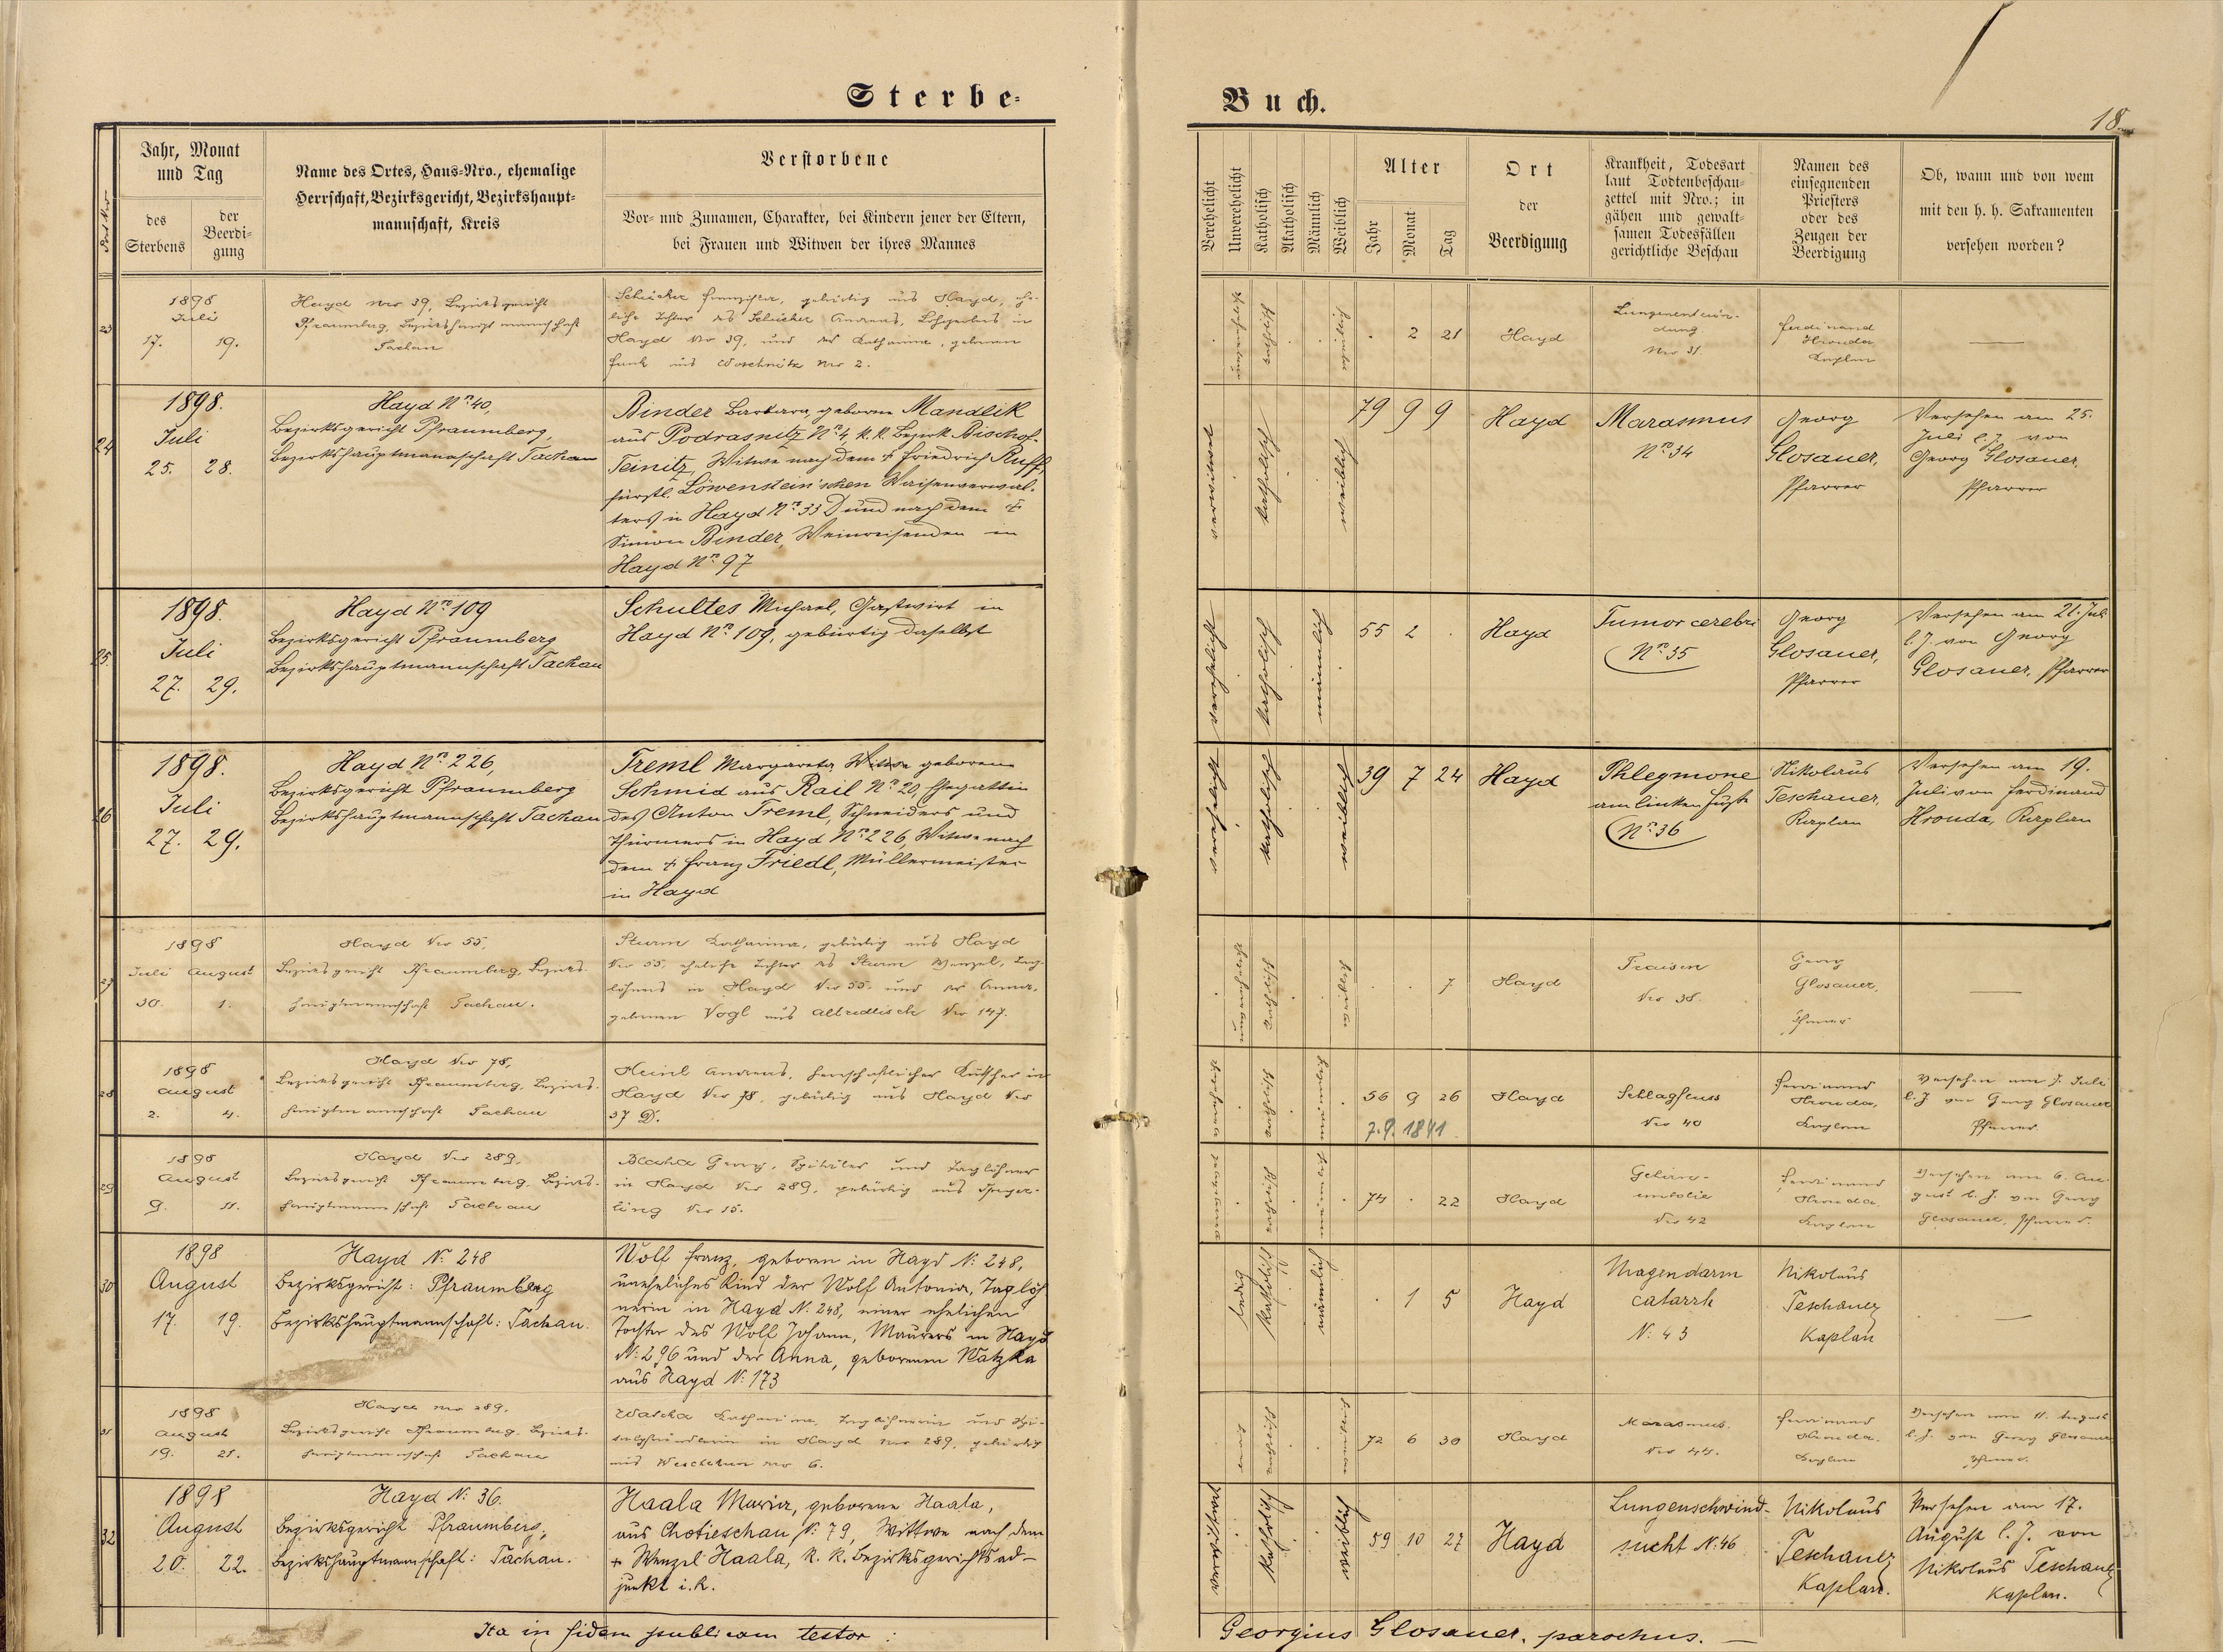 Sterbe-
Buch.
18.
Post Nro
Jahr, Monat
und Tag
des
Sterbens
der
Beerdi-
gung
Name des Ortes, Haus-Nro., ehemalige
Herrschaft, Bezirksgericht, Bezirkshaupt-
mannschaft, Kreis
Verstorbene
Vor- und Zunamen, Charakter, bei Kindern jener der Eltern,
bei Frauen und Witwen der ihres Mannes
Verehelicht
Unverehelicht
Katholisch
Akatholisch
Männlich
Weiblich
Alter
Jahr
Monat
Tag
Ort
der
Beerdigung
Krankheit, Todesart
laut Todtenbeschau-
zettel mit Nro.; in
gähen und gewalt-
samen Todesfällen
gerichtliche Beschau
Namen des
einsegnenden
Priesters
oder des
Zeugen der
Beerdigung
Ob, wann und von wem
mit den h. h. Sakramenten
versehen worden?
23
1898
Juli
17. 19.
Hayd Nro 39, Bezirksgericht
Pfraumberg, Bezirkshauptmannschaft
Tachau
gebürtig aus Hayd, ehe-
liche Tochter des Andreas, in
Hayd Nro 39, und der Katharina, geborenen
Funk aus Woschnitz Nro 2.
unverehelicht
katholisch
weiblich
. 2 21
Hayd
Lungenentzün-
dung
Nro 31.
Ferdinand
Hrouda
Kaplan
—
24
1898.
Juli
25. 28.
Hayd Nro 40,
Bezirksgericht Pfraumberg,
Bezirkshauptmannschaft Tachau
Binder Barbara, geborene Mandlik
aus Podrasnitz Nro 4, k. k. Bezirk Bischof-
Teinitz, Witwe nach dem † Friedrich Ruff,
fürstl. Löwenstein'schen Waisenverwal-
ters in Hayd Nro 33 D und nach dem †
Simon Binder, Weinreisenden in
Hayd Nro 97
verwitwet
katholisch
weiblich
79 9 9
Hayd
Marasmus
Nro 34
Georg
Glosauer,
Pfarrer
Versehen am 25.
Juli l. J. von
Georg Glosauer,
Pfarrer
25.
1898.
Juli
27. 29.
Hayd Nro 109
Bezirksgericht Pfraumberg
Bezirkshauptmannschaft Tachau
Schultes Michael, Gastwirt in
Hayd Nro 109, gebürtig daselbst
verehelicht
katholisch
männlich
55 2 .
Hayd
Tumor cerebri
Nro 35
Georg
Glosauer,
Pfarrer
Versehen am 21. Juli
l. J. von Georg
Glosauer, Pfarrer
26
1898.
Juli
27. 29.
Hayd Nro 226,
Bezirksgericht Pfraumberg
Bezirkshauptmannschaft Tachau
Treml Margareta, geborene
Schmid aus Rail Nro 20, Ehegattin
des Anton Treml, Schneiders und
Thürmers in Hayd Nro 226, Witwe nach
dem † Franz Friedl, Müllermeister
in Hayd
verehelicht
katholisch
weiblich
39 7 24
Hayd
Phlegmone
am linken Fuße
Nro 36
Nikolaus
Teschauer,
Kaplan
Versehen am 19.
Juli von Ferdinand
Hrouda, Kaplan
27
1898
Juli August
30. 1.
Hayd Nro 55,
Bezirksgericht Pfraumberg, Bezirks-
hauptmannschaft Tachau.
Sturm Katharina, gebürtig aus Hayd
Nro 55, eheliche Tochter des Sturm Wenzel, Tag-
löhners in Hayd Nro 55 und der Anna,
geborenen Vogl aus Altzedlisch Nro 147.
unverehelicht
katholisch
weiblich
. . 7
Hayd
Fraisen
Nro 38.
Georg
Glosauer,
Pfarrer
—
28
1898
August
2. 4.
Hayd Nro 78,
Bezirksgericht Pfraumberg, Bezirks-
hauptmannschaft Tachau
Heinl Andreas, herrschaftlicher Kutscher in
Hayd Nro 78, gebürtig aus Hayd Nro
37 D.
katholisch
männlich
56 9 26
7.9.1841
Hayd
Schlagfluss
Nro 40
Ferdinand
Hrouda,
Kaplan
Versehen am 7. Juli
l. J. von Georg Glosauer
Pfarrer
29
1898
August
9. 11.
Hayd Nro 289,
Bezirksgericht Pfraumberg, Bezirks-
hauptmannschaft Tachau
Blaha Georg, Spitäler und Taglöhner
in Hayd Nro 289, gebürtig aus
ling Nro 15.
katholisch
männlich
74 . 22
Hayd
Gehirn-
embolie
Nro 42
Ferdinand
Hrouda
Kaplan
Versehen am 6. Au-
gust l. J. von Georg
Glosauer, Pfarrer.
30
1898
August
17. 19.
Hayd N: 248
Bezirksgericht: Pfraumberg
Bezirkshauptmannschaft: Tachau.
Wolf Franz, geboren in Hayd N: 248,
uneheliches Kind der Wolf Antonia, Taglöh
nerin in Hayd N: 248, einer ehelichen
Tochter des Wolf Johann, Maurers in Hayd
N: 296 und der Anna, geborenen Watzka
aus Hayd N: 173
ledig
katholisch
männlich
. 1 5
Hayd
Magendarm
catarrh
N: 43
Nikolaus
Teschauer
Kaplan
—
31
1898
August
19. 21.
Hayd Nro 289.
Bezirksgericht Pfraumberg, Bezirks-
hauptmannschaft Tachau
Katharina, Taglöhnerin und Spi-
talpfründlerin in Hayd Nro 289, gebürtig
aus Nro 6.
katholisch
weiblich
72 6 30
Hayd
Marasmus.
Nro 44.
Ferdinand
Hrouda.
Kaplan
Versehen am 11. August
l. J. von Georg Glosauer
Pfarrer.
32
1898
August
20. 22.
Hayd N: 36.
Bezirksgericht Pfraumberg,
Bezirkshauptmannschaft: Tachau.
Haala Maria, geborene Haala,
aus Chotieschau N: 79, Wittwe nach dem
+ Wenzel Haala, k. k. Bezirksgerichtsad-
junkt i. R.
verwittwet
katholisch
weiblich
59 10 27
Hayd
Lungenschwind-
sucht N: 46
Nikolaus
Teschauer
Kaplan.
Versehen am 17.
August l. J. von
Nikolaus Teschauer
Kaplan.
Ita in fidem publicam testor:
Georgius Glosauer, parochus. —